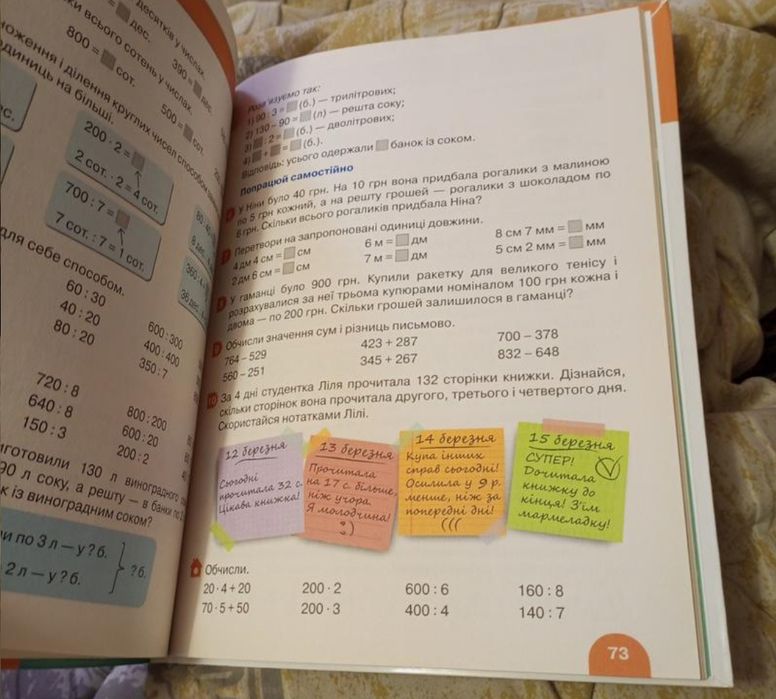 десятків у числах.
= дес.
390 = дес.
ки всього сотень у числах.
800 = сот.
500 = сот.
ноження і ділення круглих чисел способом
одиниць на більші.
200 · 2 =
2 сот. · 2 = 4 сот.
700 : 7 =
7 сот. : 7 = 1 сот.
для себе способом.
60 : 30
40 : 20
80 : 20
600 : 300
400 : 400
350 : 7
720 : 8
640 : 8
150 : 3
800 : 200
600 : 20
200 : 2
иготовили 130 л виноградного
90 л соку, а решту — в банки по 2
к із виноградним соком?
и по 3 л — у ? б.
2 л — у ? б.
? б.
Розв'язуємо так:
1) 90 : 3 = (б.) — трилітрових;
2) 130 – 90 = (л) — решта соку;
3) : 2 = (б.) — дволітрових;
4) + = (б.).
Відповідь: усього одержали банок із соком.
Попрацюй самостійно
У Ніни було 40 грн. На 10 грн вона придбала рогалики з малиною
по 5 грн кожний, а на решту грошей — рогалики з шоколадом по
6 грн. Скільки всього рогаликів придбала Ніна?
Перетвори на запропоновані одиниці довжини.
4 дм 4 см = см
6 м = дм
8 см 7 мм = мм
2 дм 6 см = см
7 м = дм
5 см 2 мм = мм
У гаманці було 900 грн. Купили ракетку для великого тенісу і
розрахувалися за неї трьома купюрами номіналом 100 грн кожна і
двома — по 200 грн. Скільки грошей залишилося в гаманці?
Обчисли значення сум і різниць письмово.
764 – 529
423 + 287
700 – 378
560 – 251
345 + 267
832 – 648
10 За 4 дні студентка Ліля прочитала 132 сторінки книжки. Дізнайся,
скільки сторінок вона прочитала другого, третього і четвертого дня.
Скористайся нотатками Лілі.
12 березня
Сьогодні
прочитала 32 с.
Цікава книжка!
13 березня
Прочитала
на 17 с. більше,
ніж учора.
Я молодчина!
:)
14 березня
Купа інших
справ сьогодні!
Осилила у 9 р.
менше, ніж за
попередні дні!
(((
15 березня
СУПЕР!
Дочитала
книжку до
кінця! З'їм
мармеладку!
Обчисли.
20 · 4 + 20
200 · 2
600 : 6
160 : 8
70 · 5 + 50
200 · 3
400 : 4
140 : 7
73